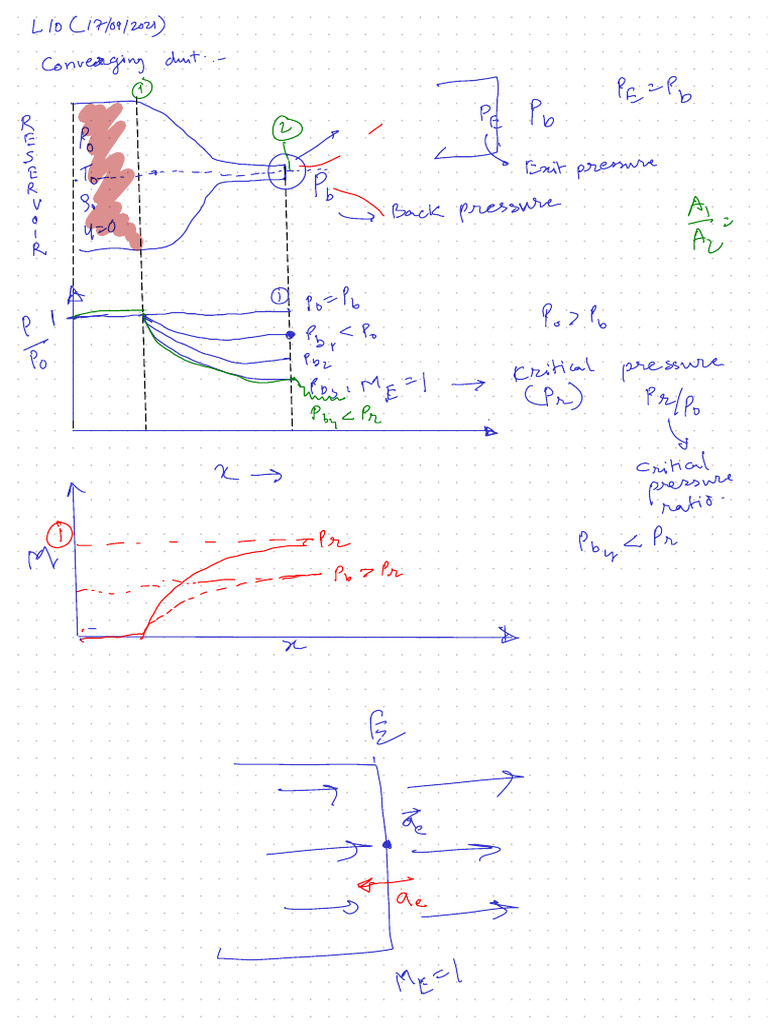 L10 (17/09/2021)
Converging duct...
①
②
RESERVOIR
P₀
T₀
S₀
u=0
P_b
Back pressure
P_E
P_b
P_E = P_b
Exit pressure
A₁/A₂ =
①
P/P₀
1
P₀ = P_b
P_b₁ < P₀
P_b₂
P_b₃, M_E = 1
P_b₄ < Pr
P₀ > P_b
Kritical pressure
(Pr)
Pr/P₀
Critical
pressure
ratio.
P_b₄ < Pr
x →
①
M
Pr
P_b > Pr
x
E
a⃗_e
a_e
M_E = 1